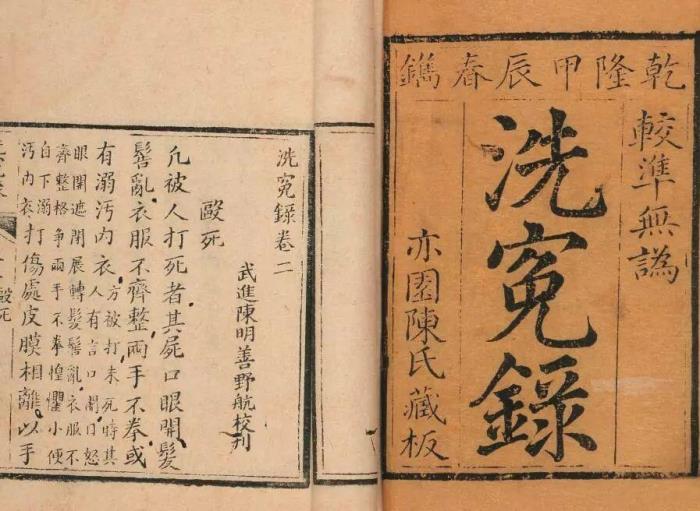 乾隆甲辰春鐫
較準無譌
洗寃錄
亦園陳氏藏板
洗寃錄卷二
武進陳明善野航校刊
毆死
凢被人打死者其屍口眼開髮
髻亂衣服不齊整兩手不拳或
有溺汚內衣
方被打未死時其
人有言口閙口怒
眼開遮閉展轉髮髻亂衣服不
齊整格争兩手不拳惶懼小便
自下溺
汚內衣
打傷處皮膜相離以手
毆死